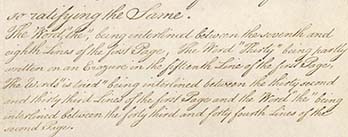 so ratifying the Same.
The Word, "the", being interlined between the seventh and
eighth Lines of the first Page, The Word "Thirty" being partly
written on an Erazure in the fifteenth Line of the first Page,
The Words "is tried" being interlined between the thirty second
and thirty third Lines of the first Page and the Word "the" being
interlined between the forty third and forty fourth Lines of the
second Page.